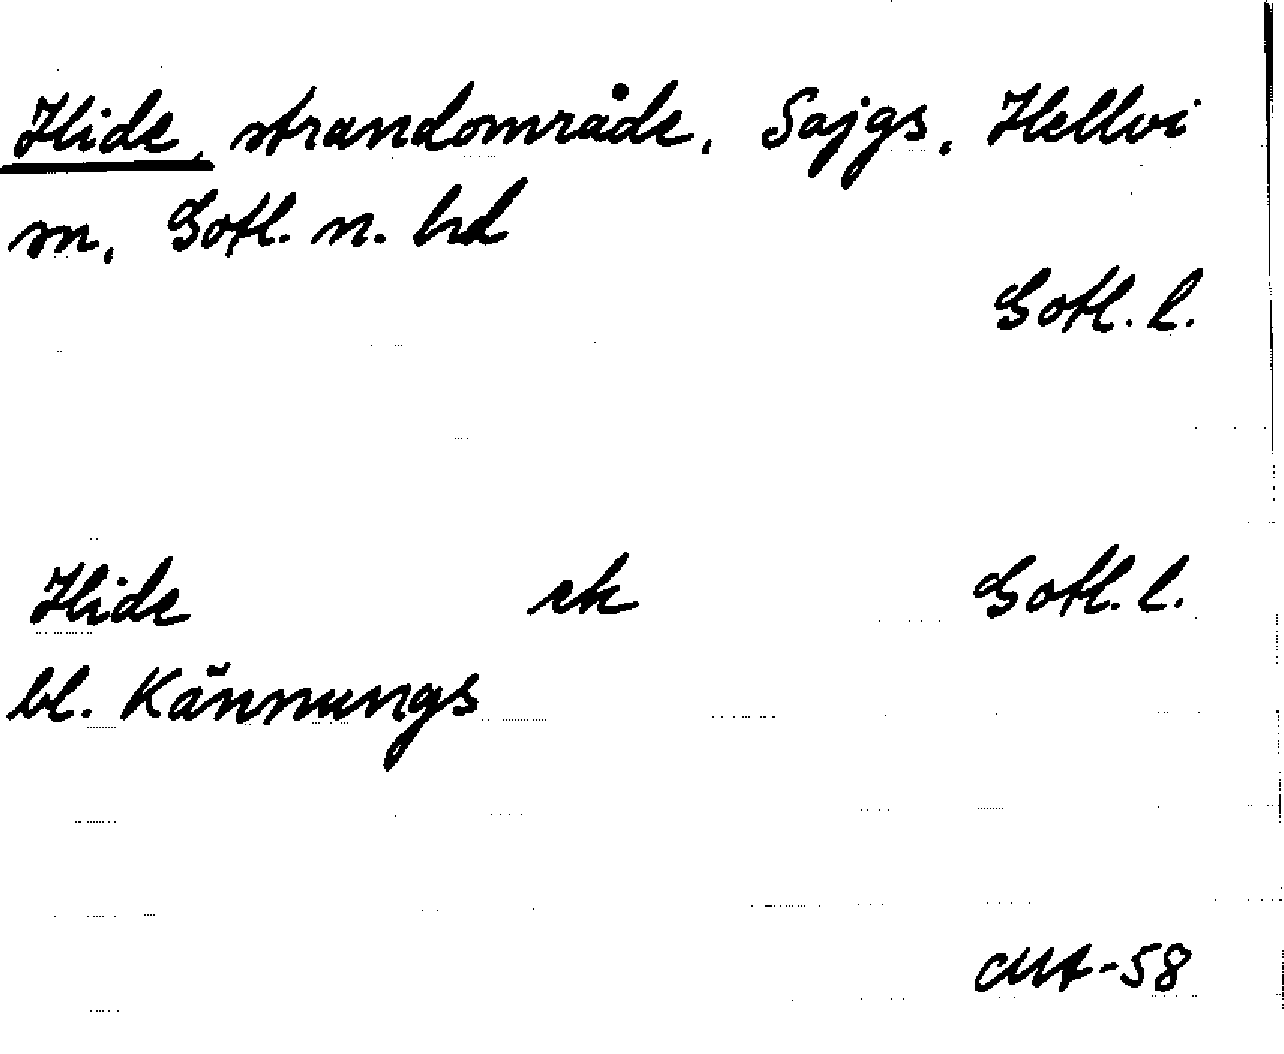 Hide, strandområde, Sajgs, Hellvi
sn, Gotl. n. hd
Gotl. l.
Hide ek Gotl. l.
bl. Kännungs
-58